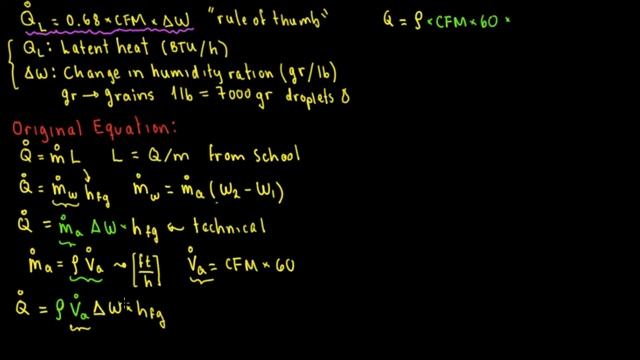 Q̊L = 0.68 × CFM × ΔW "rule of thumb"
QL: Latent heat (BTU/h)
ΔW: Change in humidity ration (gr/lb)
gr → grains 1 lb = 7000 gr droplets
Original Equation:
Q̊ = m̊ L L = Q/m from school
Q̊ = m̊w hfg m̊w = m̊a (W2 - W1)
Q̊ = m̊a ΔW × hfg technical
m̊a = ρ V̊a → [ft/h] V̊a = CFM × 60
Q̊ = ρ V̊a ΔW × hfg
Q = ρ × CFM × 60 ×